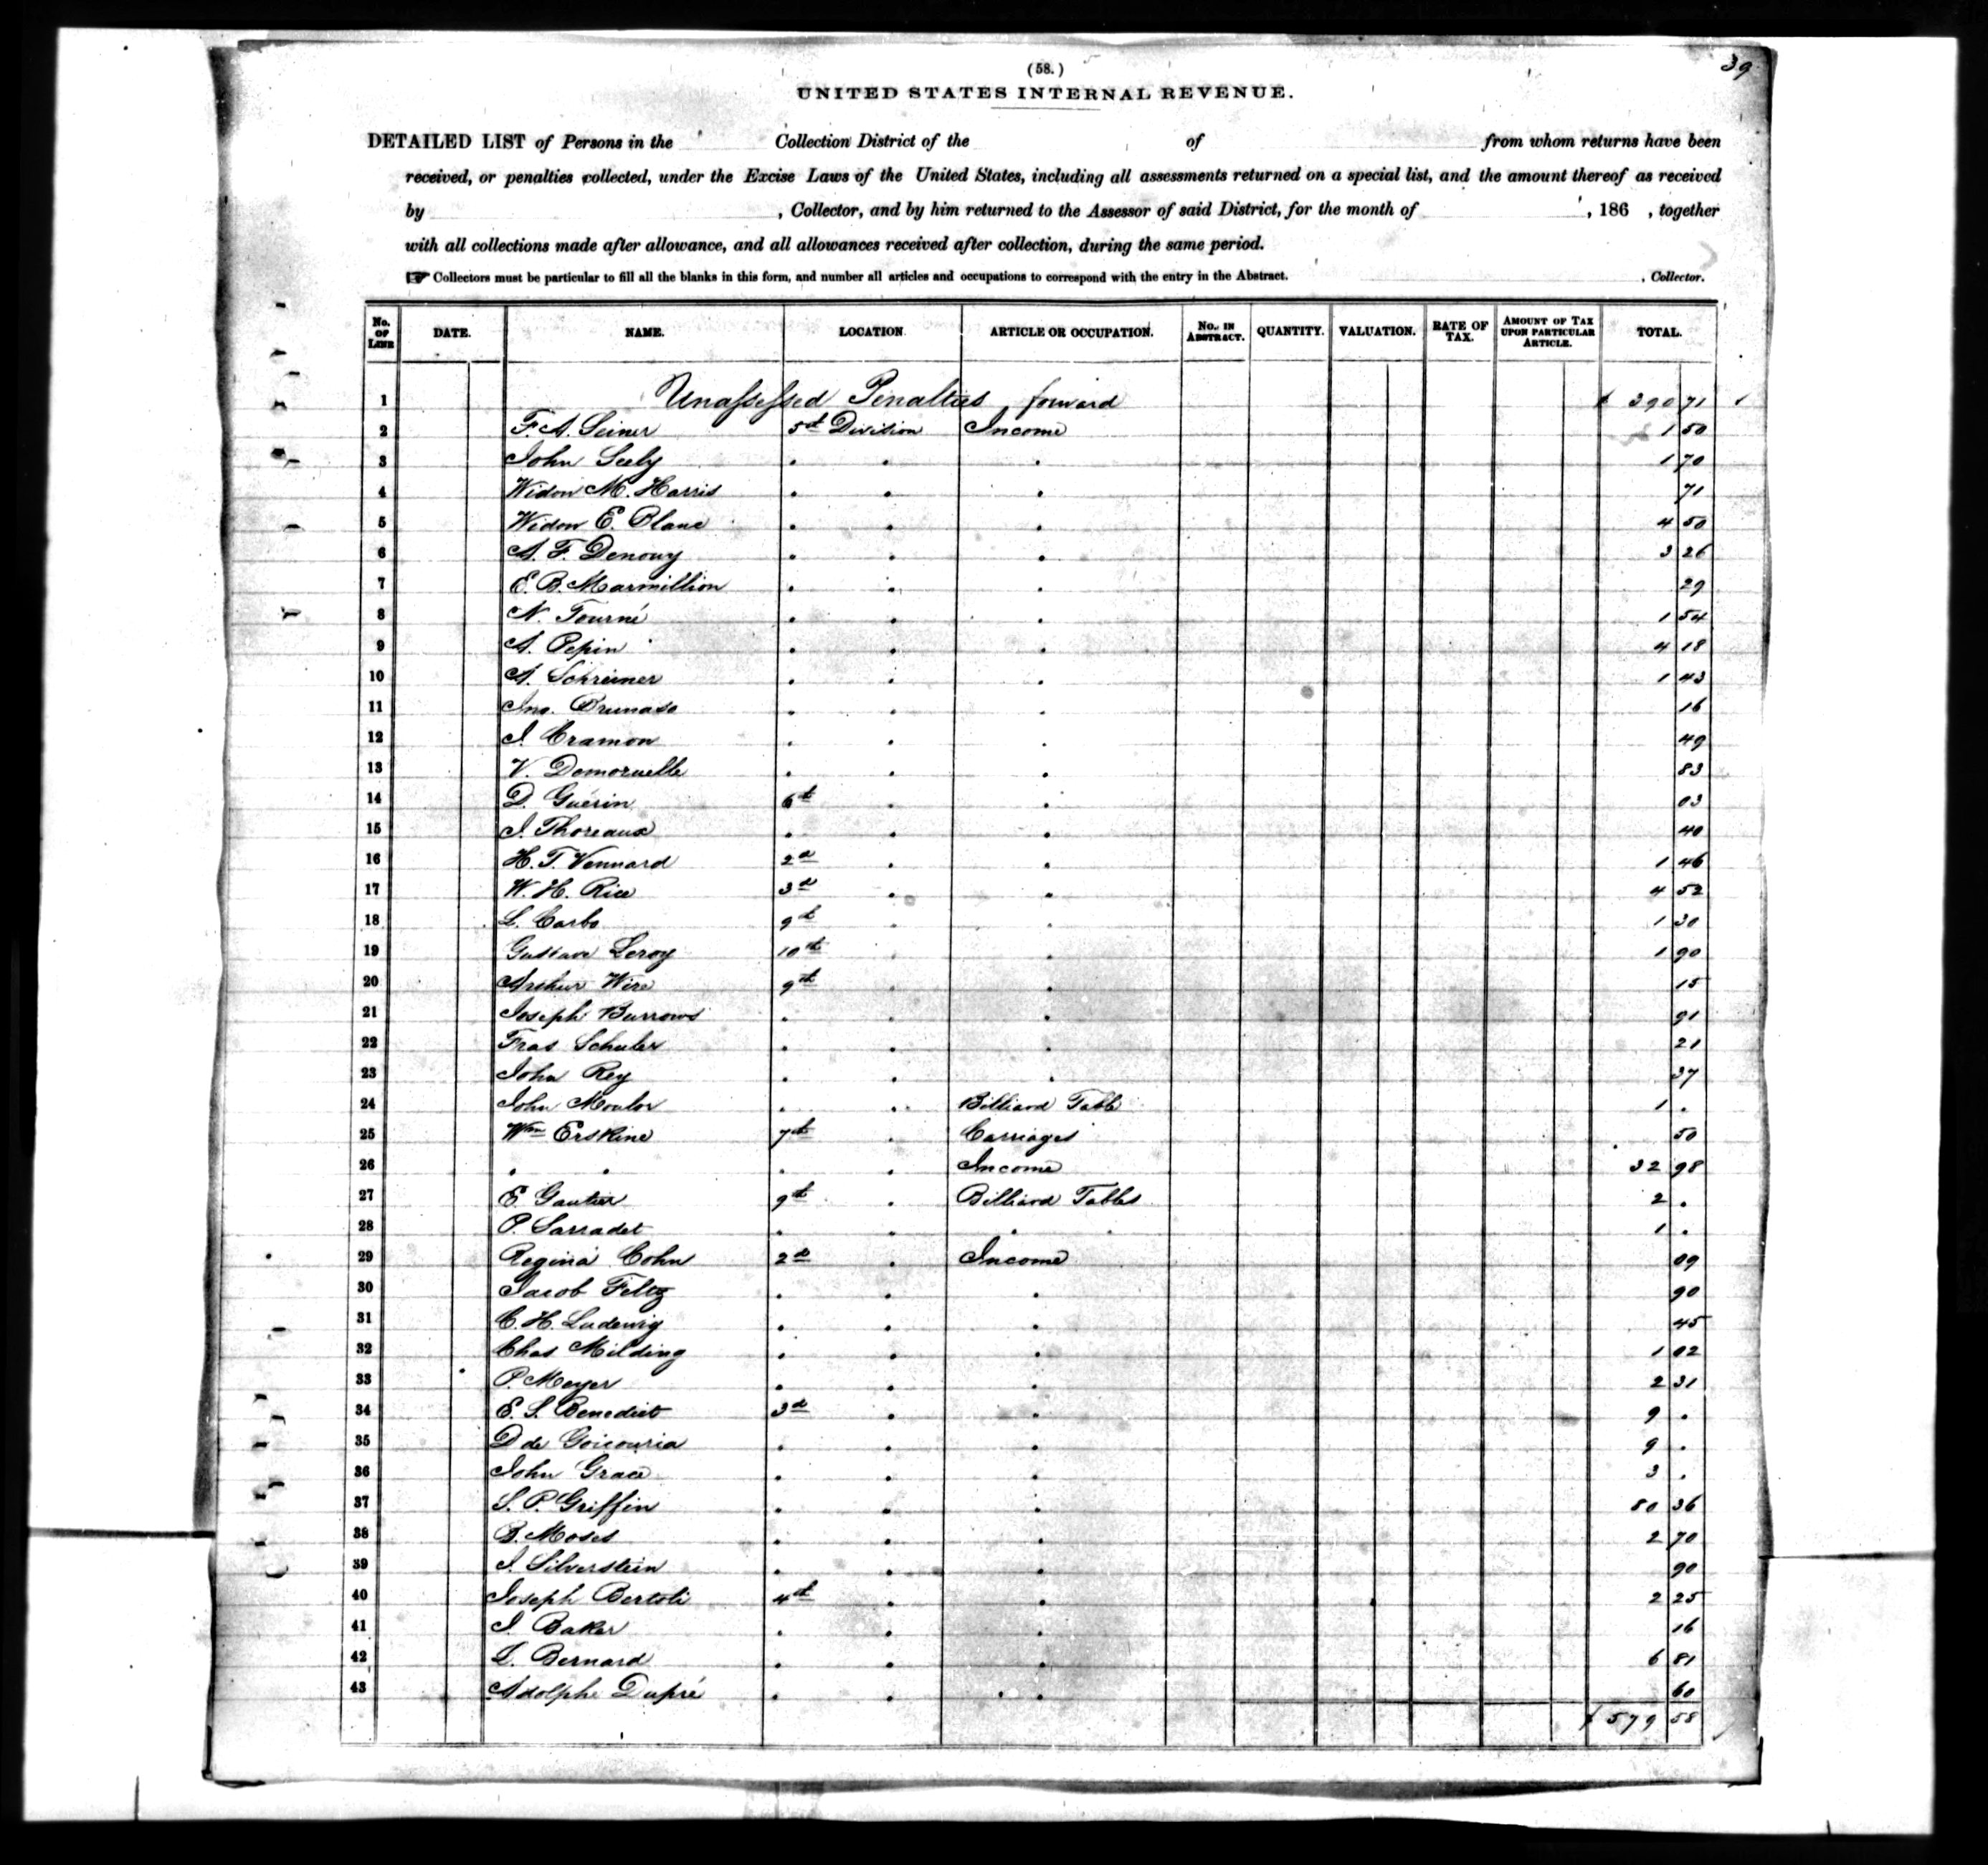 39
(58.)
UNITED STATES INTERNAL REVENUE.
DETAILED LIST of Persons in the Collection District of the of from whom returns have been
received, or penalties collected, under the Excise Laws of the United States, including all assessments returned on a special list, and the amount thereof as received
by , Collector, and by him returned to the Assessor of said District, for the month of , 186 , together
with all collections made after allowance, and all allowances received after collection, during the same period.
☞ Collectors must be particular to fill all the blanks in this form, and number all articles and occupations to correspond with the entry in the Abstract. , Collector.
No. OF LINE DATE. NAME. LOCATION. ARTICLE OR OCCUPATION. No. IN ABSTRACT. QUANTITY. VALUATION. RATE OF TAX. AMOUNT OF TAX UPON PARTICULAR ARTICLE. TOTAL.
1 Unassessed Penalties forward $ 390 71
2 F. A. Seiner 5th Division Income 1 50
3 John Seely . . . 1 70
4 Widow M. Harris . . . 71
5 Widow E. Blanc . . . 4 50
6 A. F. Denouy . . . 3 26
7 E. B. Marmillion . . . 29
8 N. Tourné . . . 1 54
9 A. Pepin . . . 4 18
10 A. Schreiner . . . 1 43
11 Jno. Brunaso . . . 16
12 J. Cramon . . . 49
13 V. Demoruelle . . . 83
14 D. Guerin 6th . . 03
15 J. Thoreaux . . . 40
16 H. T. Vennard 2d . . 1 46
17 W. H. Rice 3d . . 4 52
18 L. Carbo 9th . . 1 30
19 Gustave Leroy 10th . . 1 90
20 Arthur Wire 9th . . 15
21 Joseph Burrows . . . 91
22 Fras Schuler . . . 21
23 John Rey . . . 37
24 John Moulor . . Billiard Table 1 .
25 Wm Erskine 7th . Carriages 50
26 . . . . Income 32 98
27 E. Gautier 9th . Billiard Tables 2 .
28 P. Sarradet . . . . 1 .
29 Regina Cohn 2d . Income 09
30 Jacob Feltz . . . 90
31 C. H. Ludewig . . . 45
32 Chas Milding . . . 1 02
33 P. Meyer . . . 2 31
34 E. S. Benedict 3d . . 9 .
35 D de Goicouria . . . 9 .
36 John Grace . . . 3 .
37 S. P. Griffin . . . 80 36
38 B. Moses . . . 2 70
39 J. Silverstein . . . 90
40 Joseph Bertoli 4th . . 2 25
41 J. Baker . . . 16
42 L. Bernard . . . 6 81
43 Adolphe Dupré . . . 60
$ 579 58